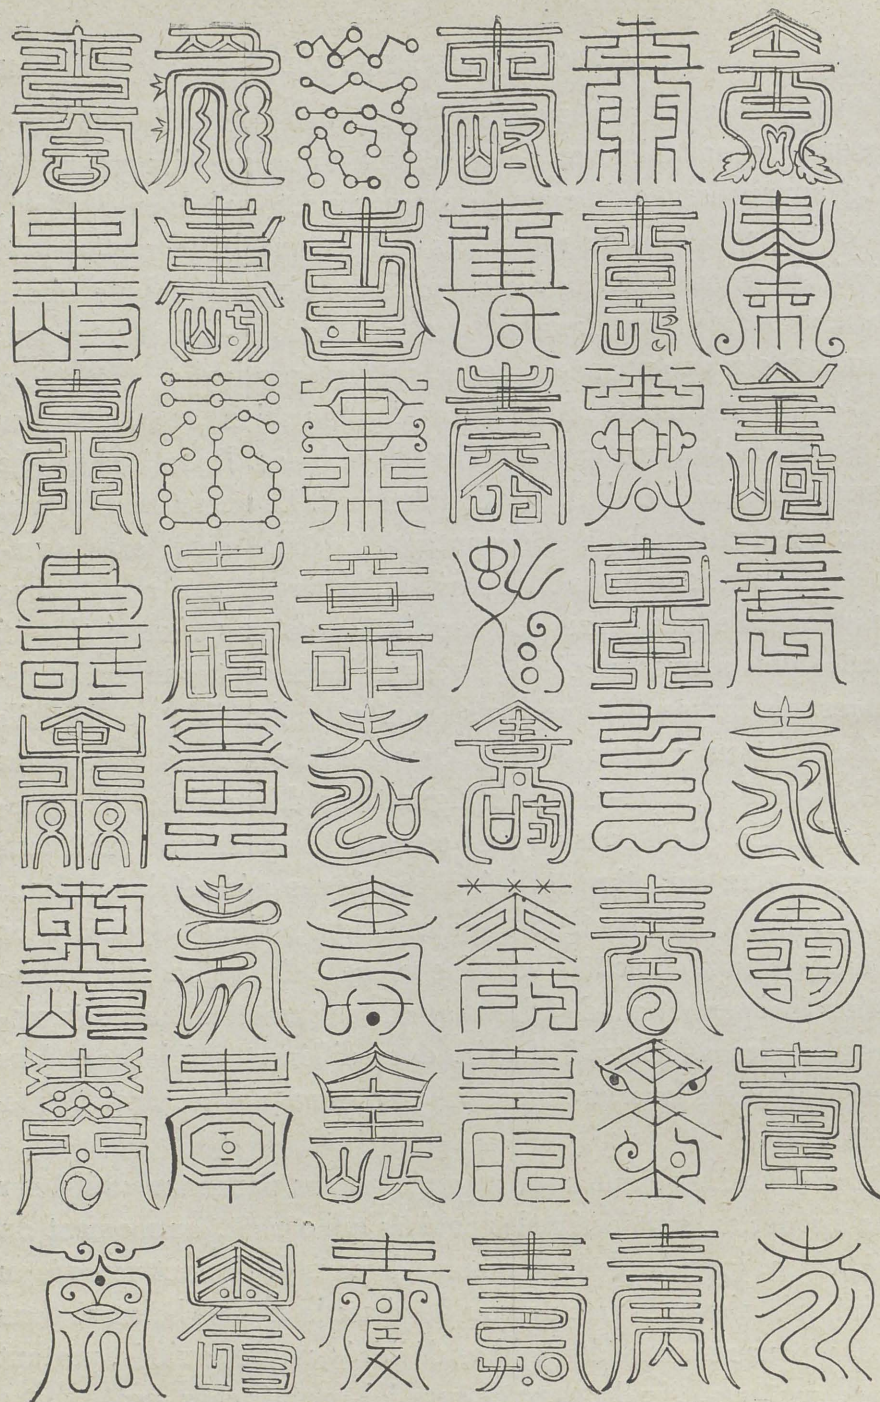 壽壽壽壽壽壽壽壽
壽壽壽壽壽壽壽壽
壽壽壽壽壽壽壽壽
壽壽壽壽壽壽壽壽
壽壽壽壽壽壽壽壽
壽壽壽壽壽壽壽壽